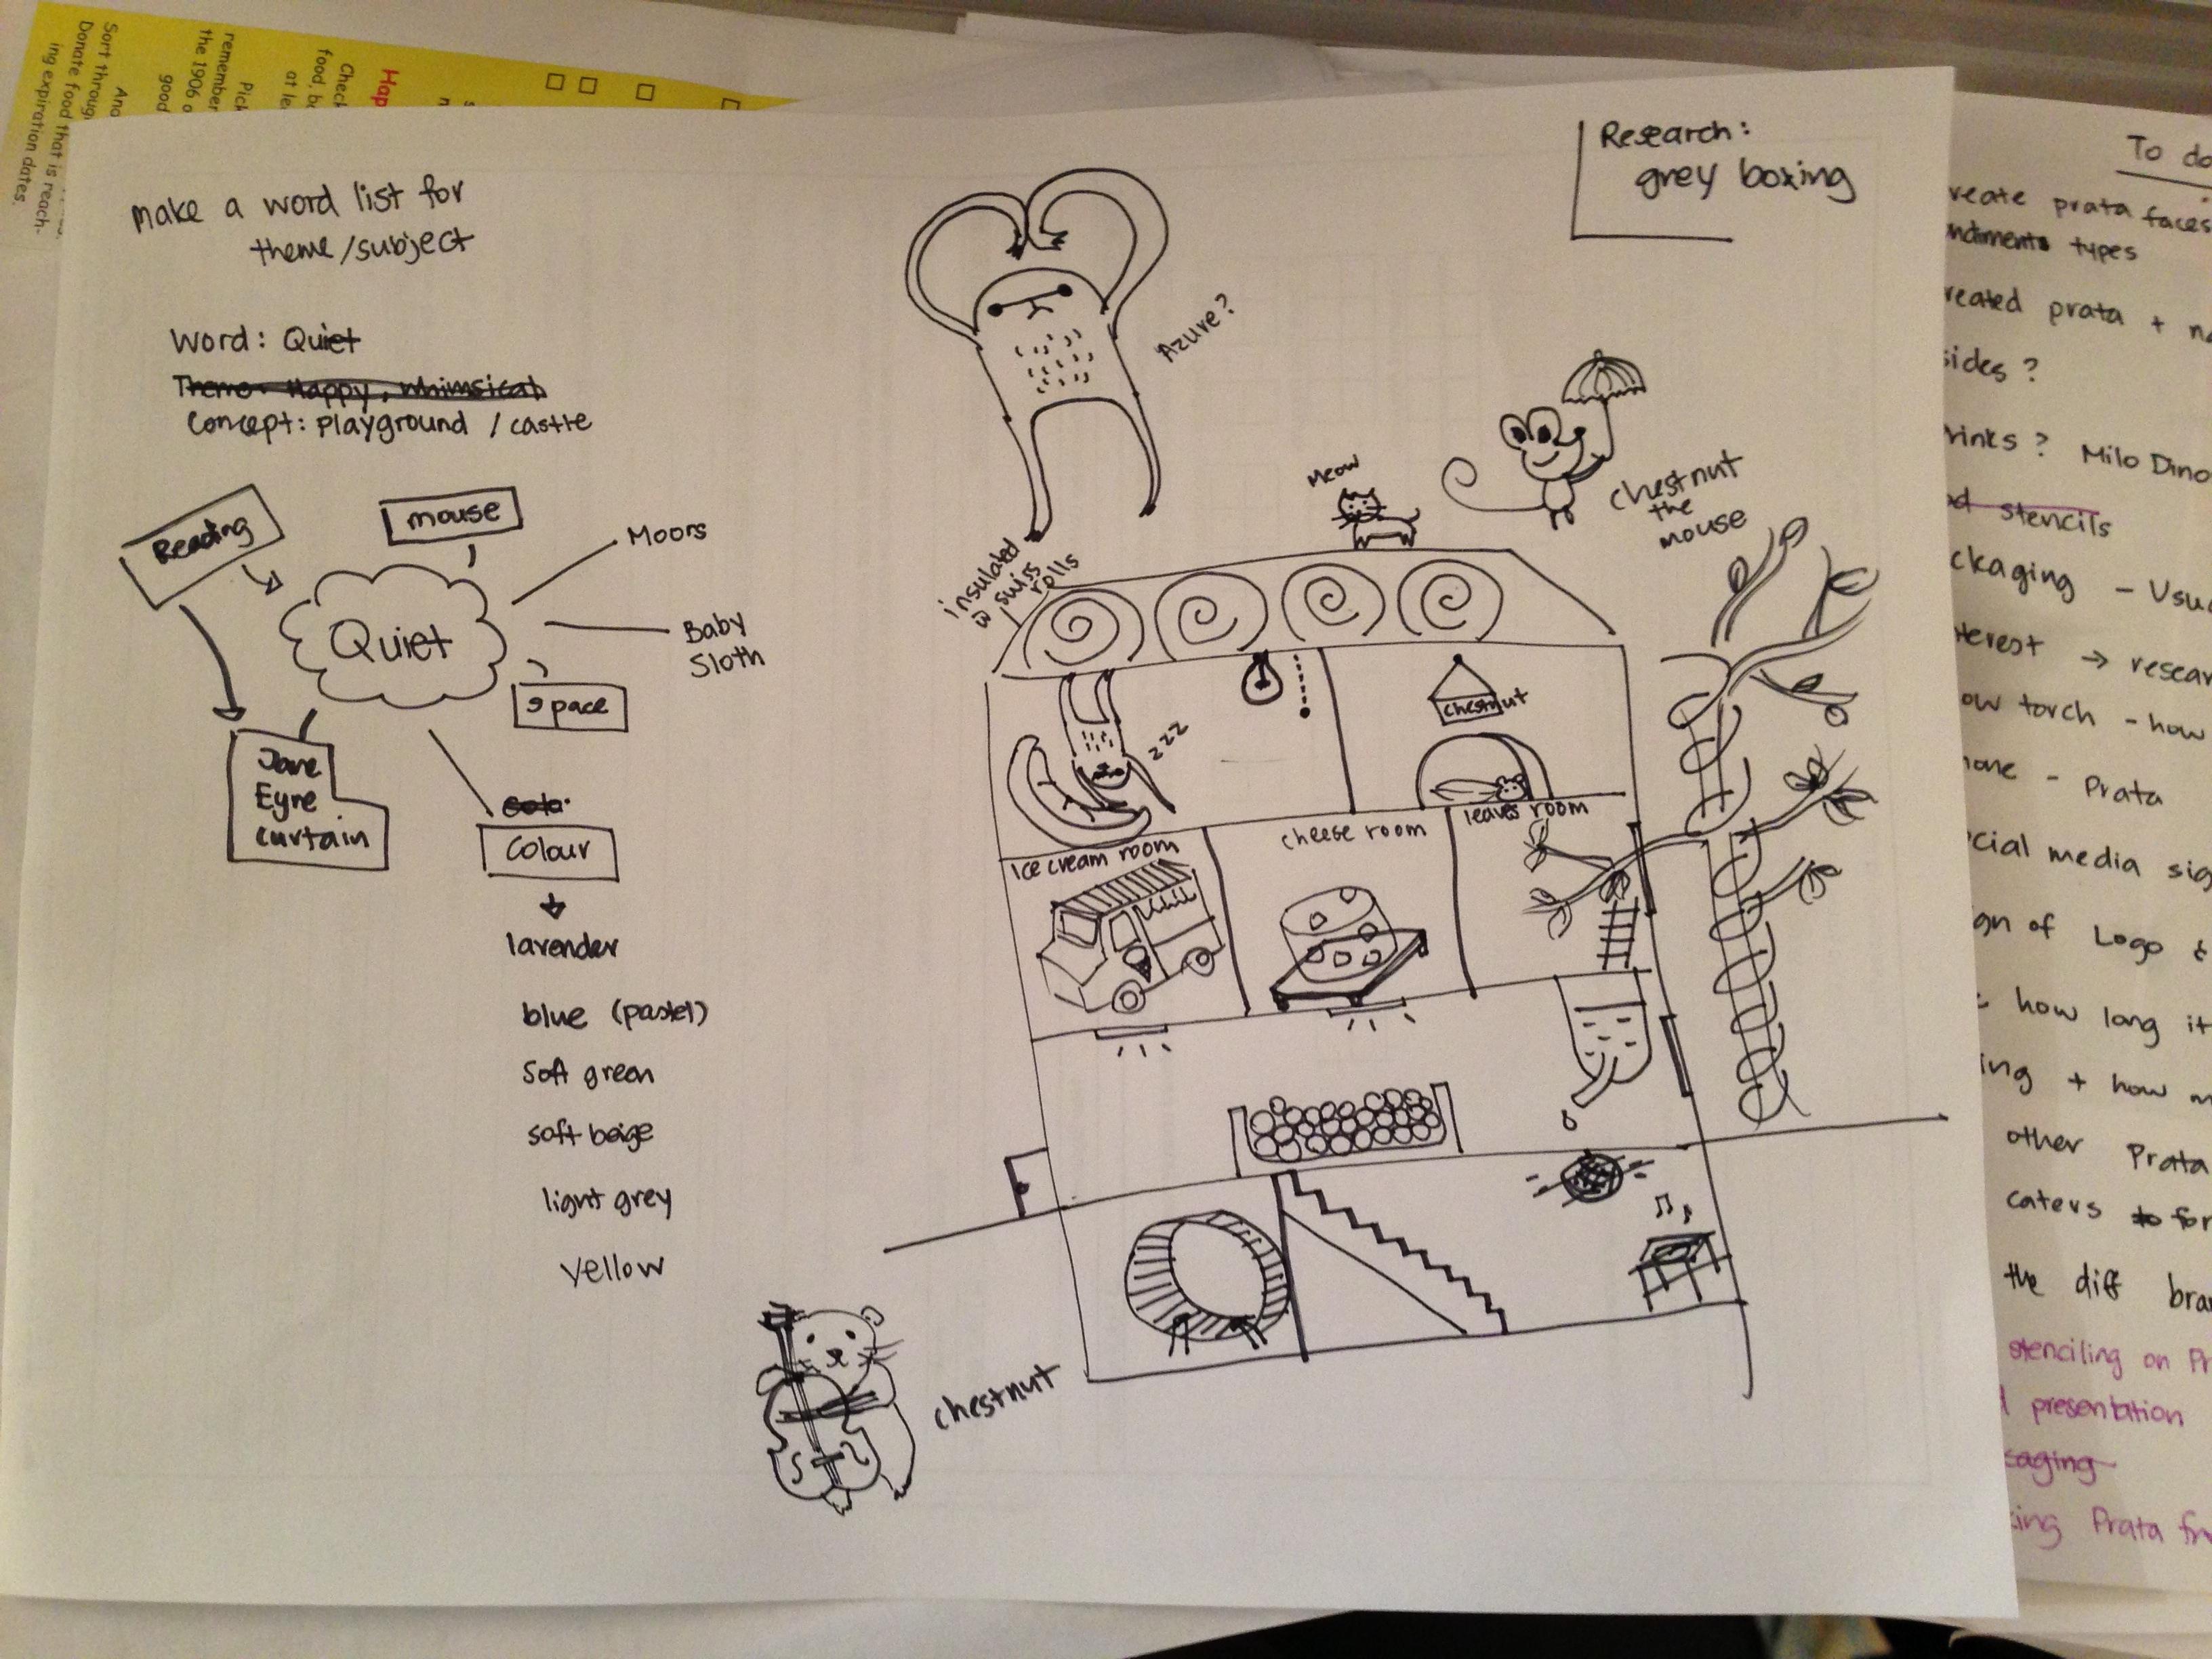 make a word list for
theme/subject
Word: Quiet
Theme: Happy, whimsical
Concept: playground / castle
Reading
mouse
Moors
Quiet
Baby
Sloth
space
Jane
Eyre
curtain
Colour
lavender
blue (pastel)
soft green
soft beige
light grey
yellow
Research:
grey boxing
Azure?
meow
chestnut
the
mouse
insulated
swiss
rolls
zzz
chestnut
Ice cream room
cheese room
leaves room
chestnut
To do
reate prata faces
ndiments types
reated prata + n
sides ?
rinks ? Milo Dino
stencils
ckaging - Usu
terest → resear
ow torch - how
hone - Prata
cial media sig
gn of Logo &
how long it
ing + how m
other Prata
caters to for
the diff bra
stenciling on Pr
presentation
kaging
king Prata fr
Sort throug
Donate food that is reach-
ing expiration dates.
Pick
remember
the 1906
good
Check
food, b
at le
Hap